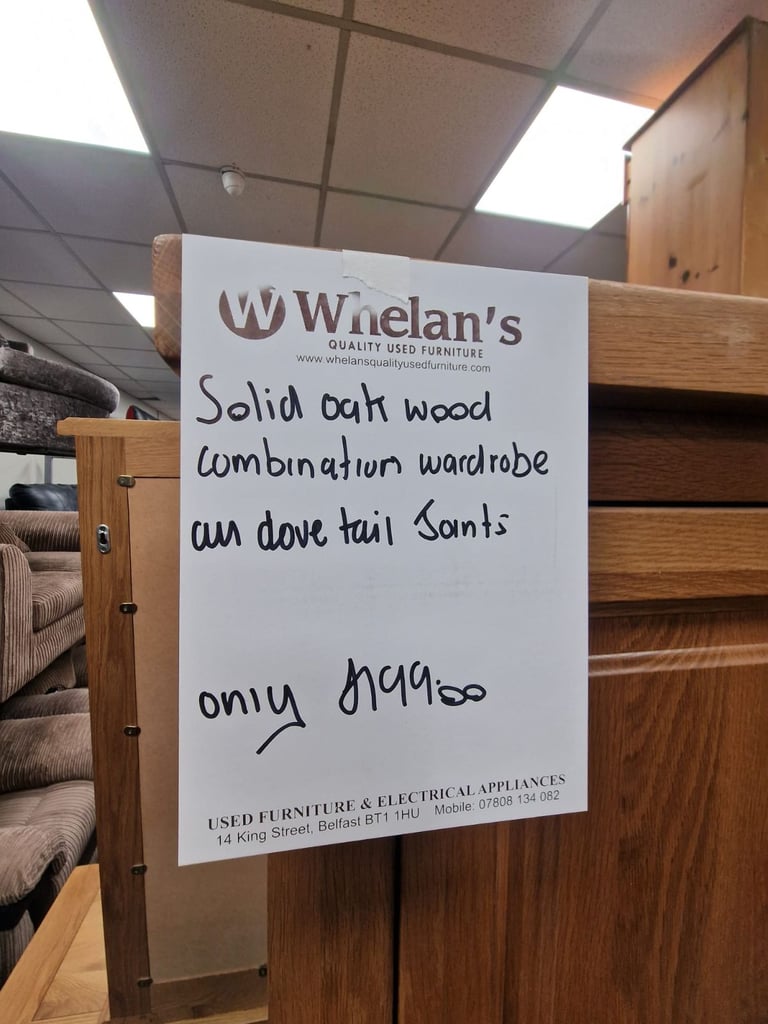 W Whelan's
QUALITY USED FURNITURE
www.whelansqualityusedfurniture.com
Solid oak wood
combination wardrobe
all dove tail Joints
only £199.00
USED FURNITURE & ELECTRICAL APPLIANCES
14 King Street, Belfast BT1 1HU Mobile: 07808 134 082